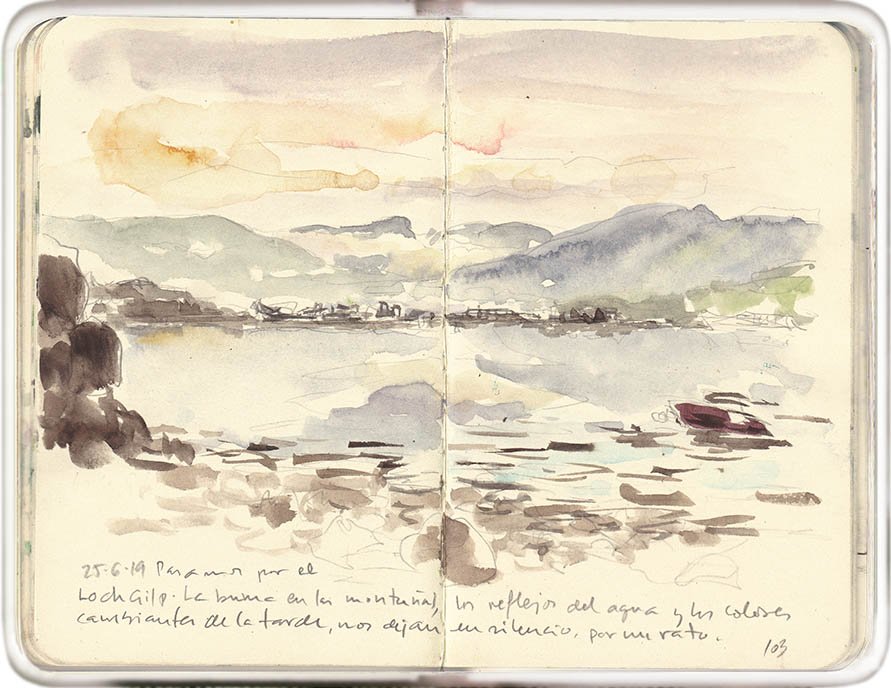 25-6-19 Paramos por el
Loch Gilp. La bruma en las montañas, los reflejos del agua y los colores
cambiantes de la tarde, nos dejan en silencio, por un rato.
103